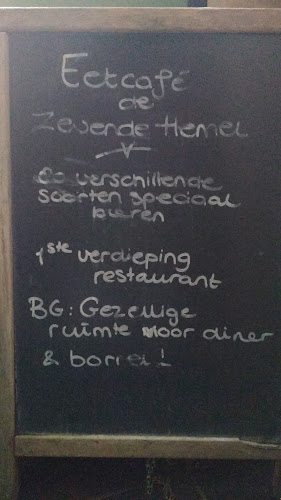 Eetcafé
de
Zevende Hemel
verschillende
soorten speciaal
bieren
1ste verdieping
restaurant
BG: Gezellige
ruimte voor diner
& borrel!